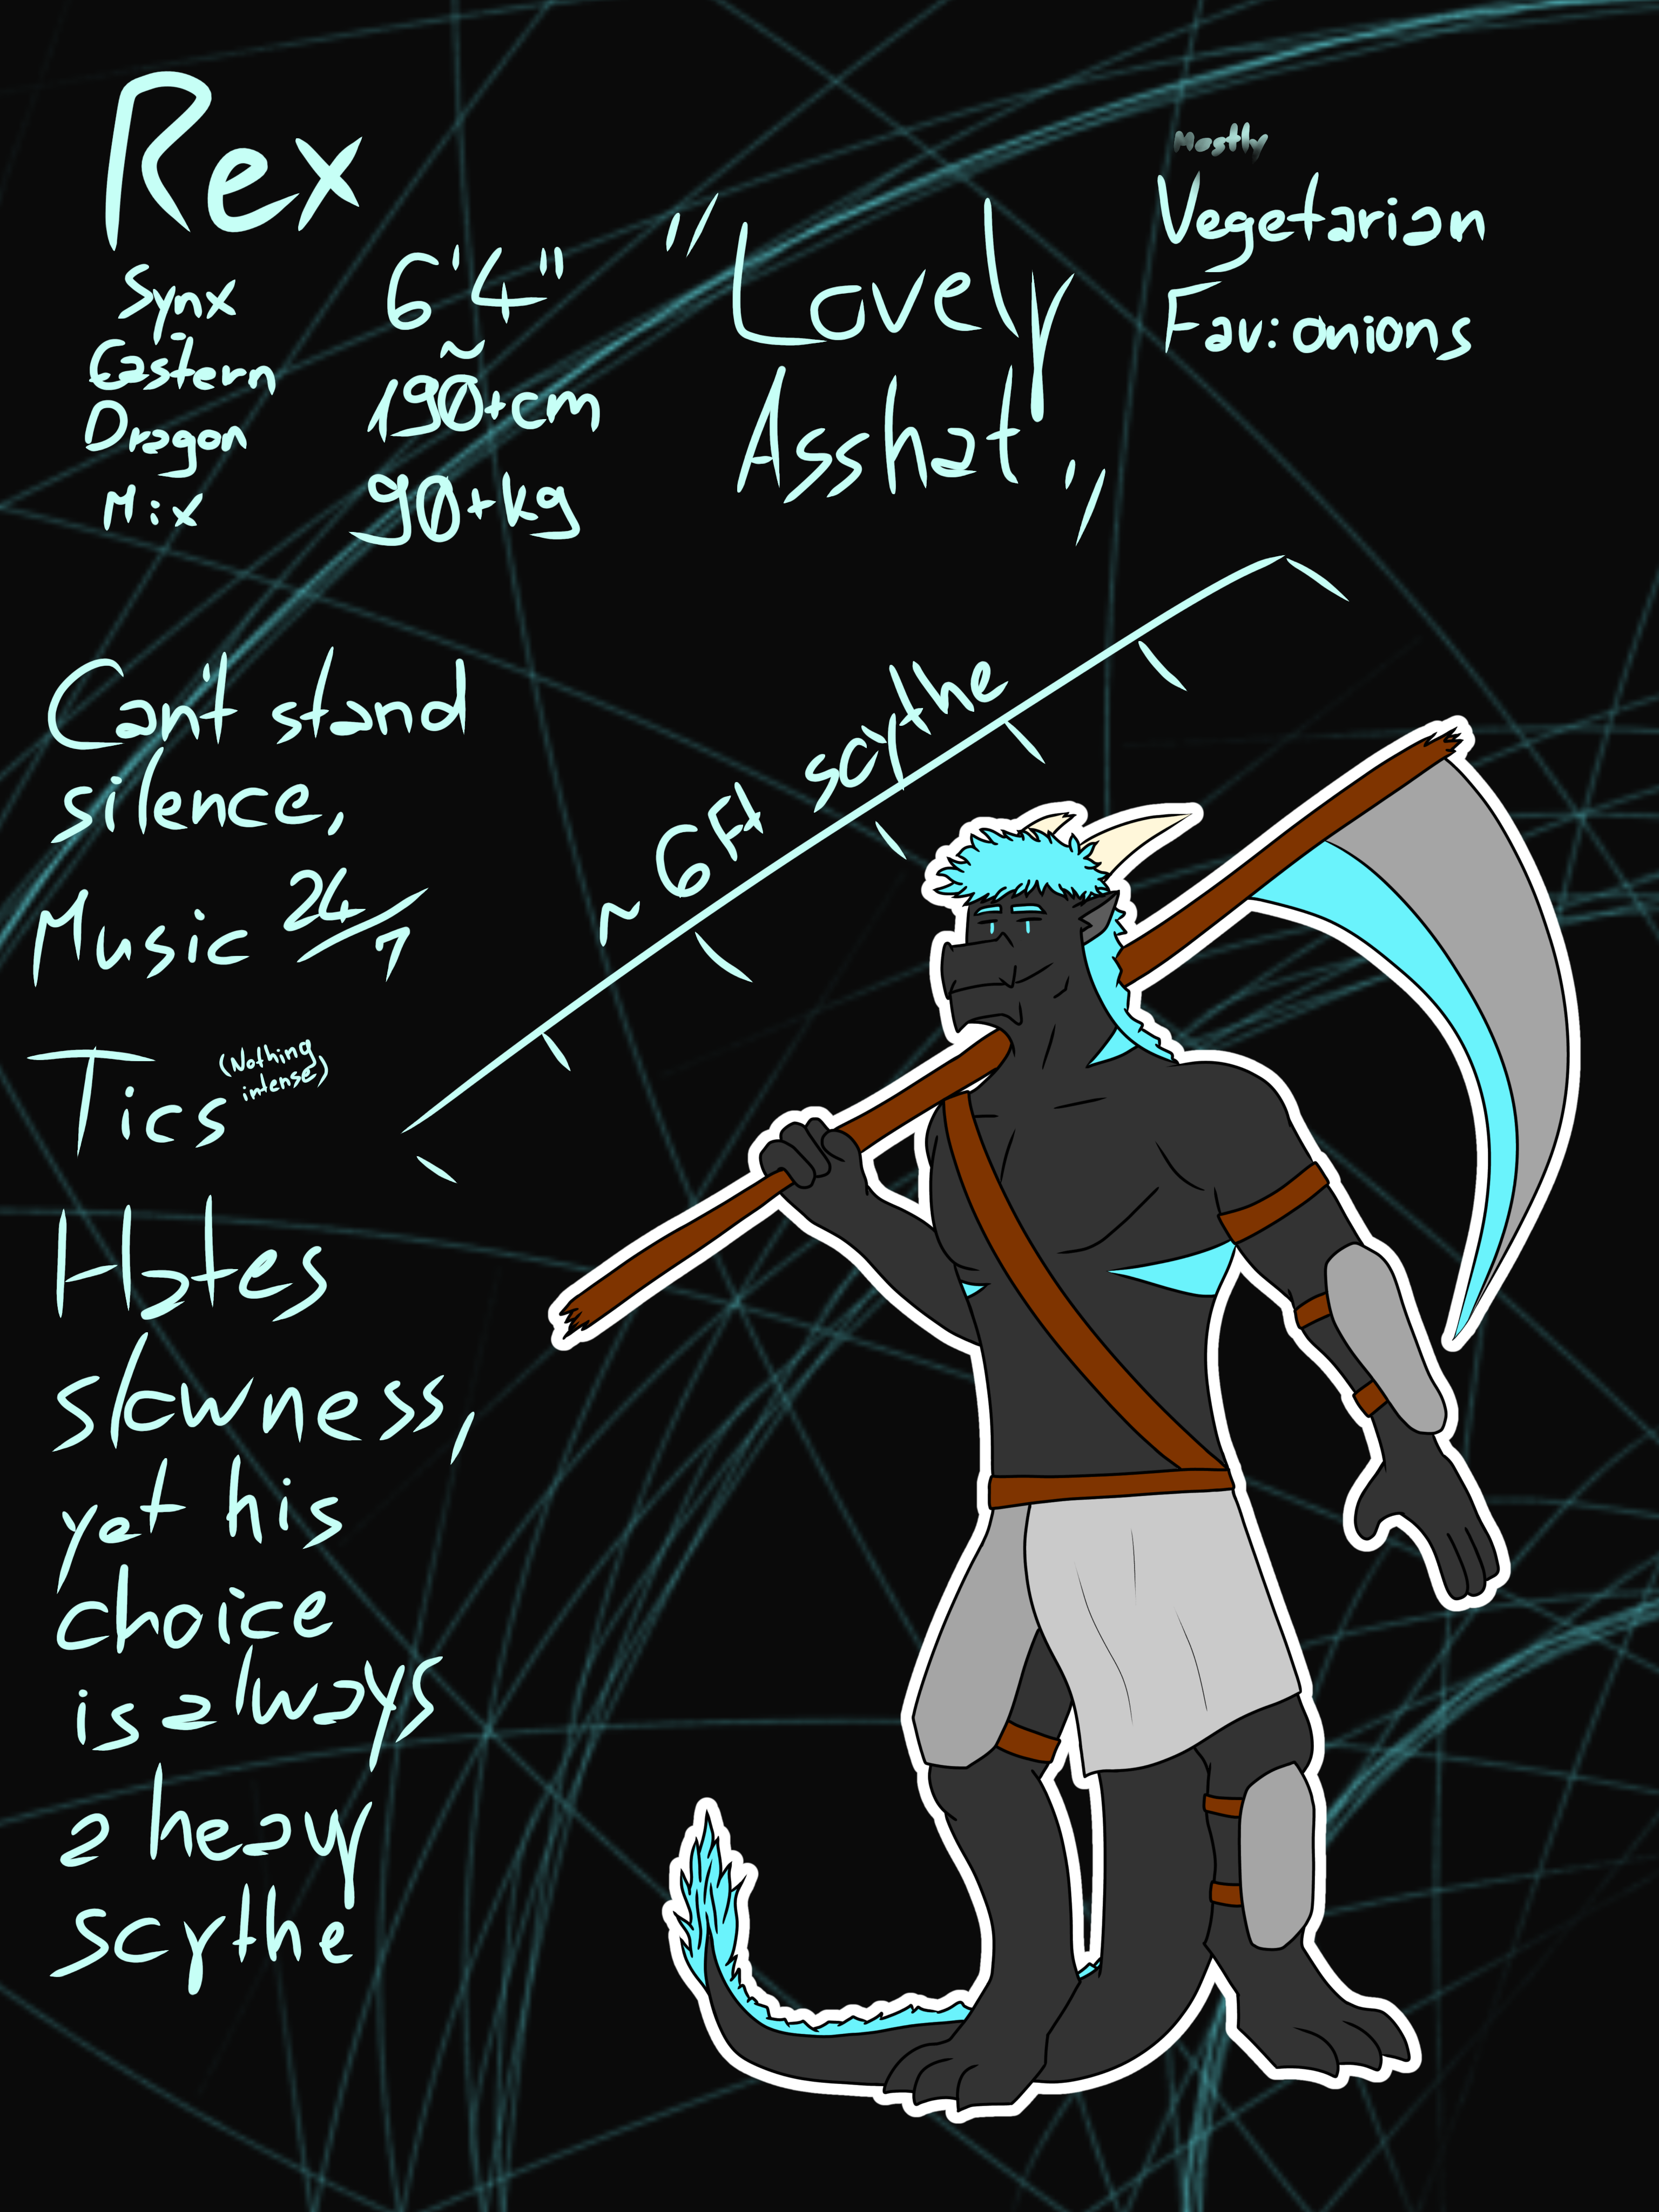 Rex
Synx
Eastern
Dragon
Mix
6'4"
~
190+cm
90+kg
"Lovely
Asshat"
Mostly
Vegetarian
Fav: onions
~6ft scythe
Can't stand
silence,
Music 24/7
Tics (Nothing
intense)
Hates
slowness,
yet his
choice
is always
a heavy
scythe